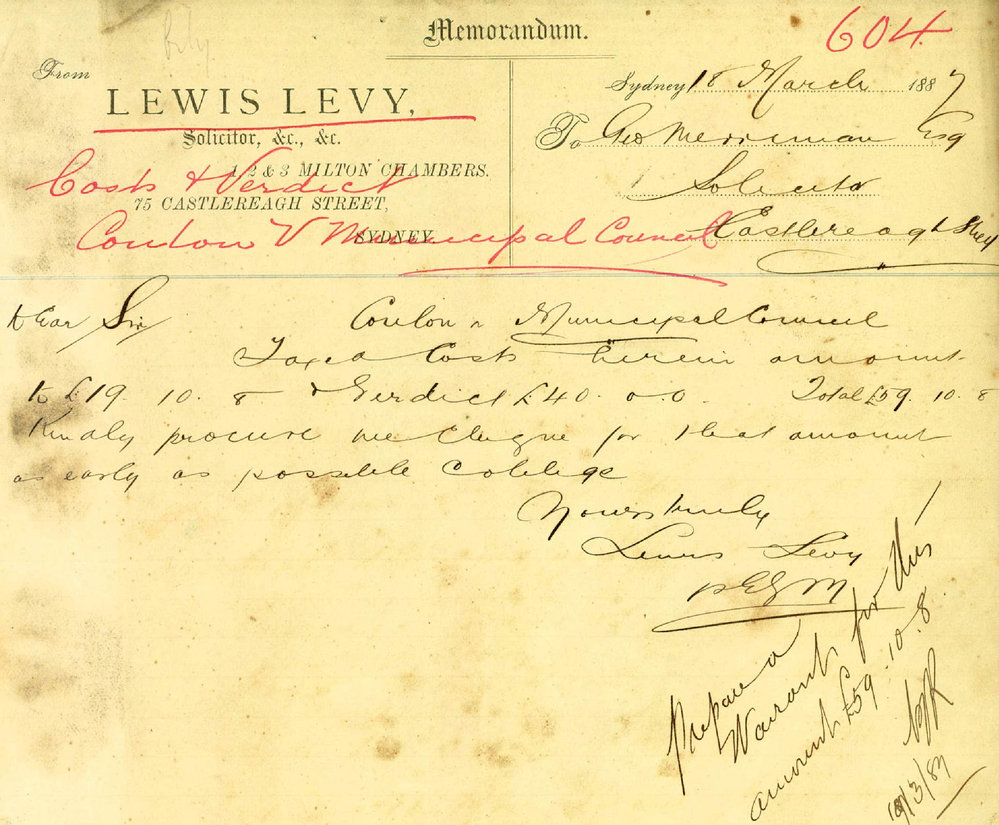 Memorandum.
604
From
LEWIS LEVY,
Solicitor, &c., &c.
1, 2 & 3 MILTON CHAMBERS.
75 CASTLEREAGH STREET,
SYDNEY.
Costs & Verdict
Coulon V Municipal Council
Sydney 18 March 1887
To Geo Merriman Esq
Solicitor
Castlereagh Street
Dear Sir
Coulon v Municipal Council
Taxed Costs herein amount
to £19. 10. 8 & Verdict £40. 0. 0. Total £59. 10. 8
Kindly procure me cheque for that amount
as early as possible & oblige
Yours truly
Lewis Levy
p E G M
Prepare a
Warrant for this
amount £59. 10. 8.
19/3/87